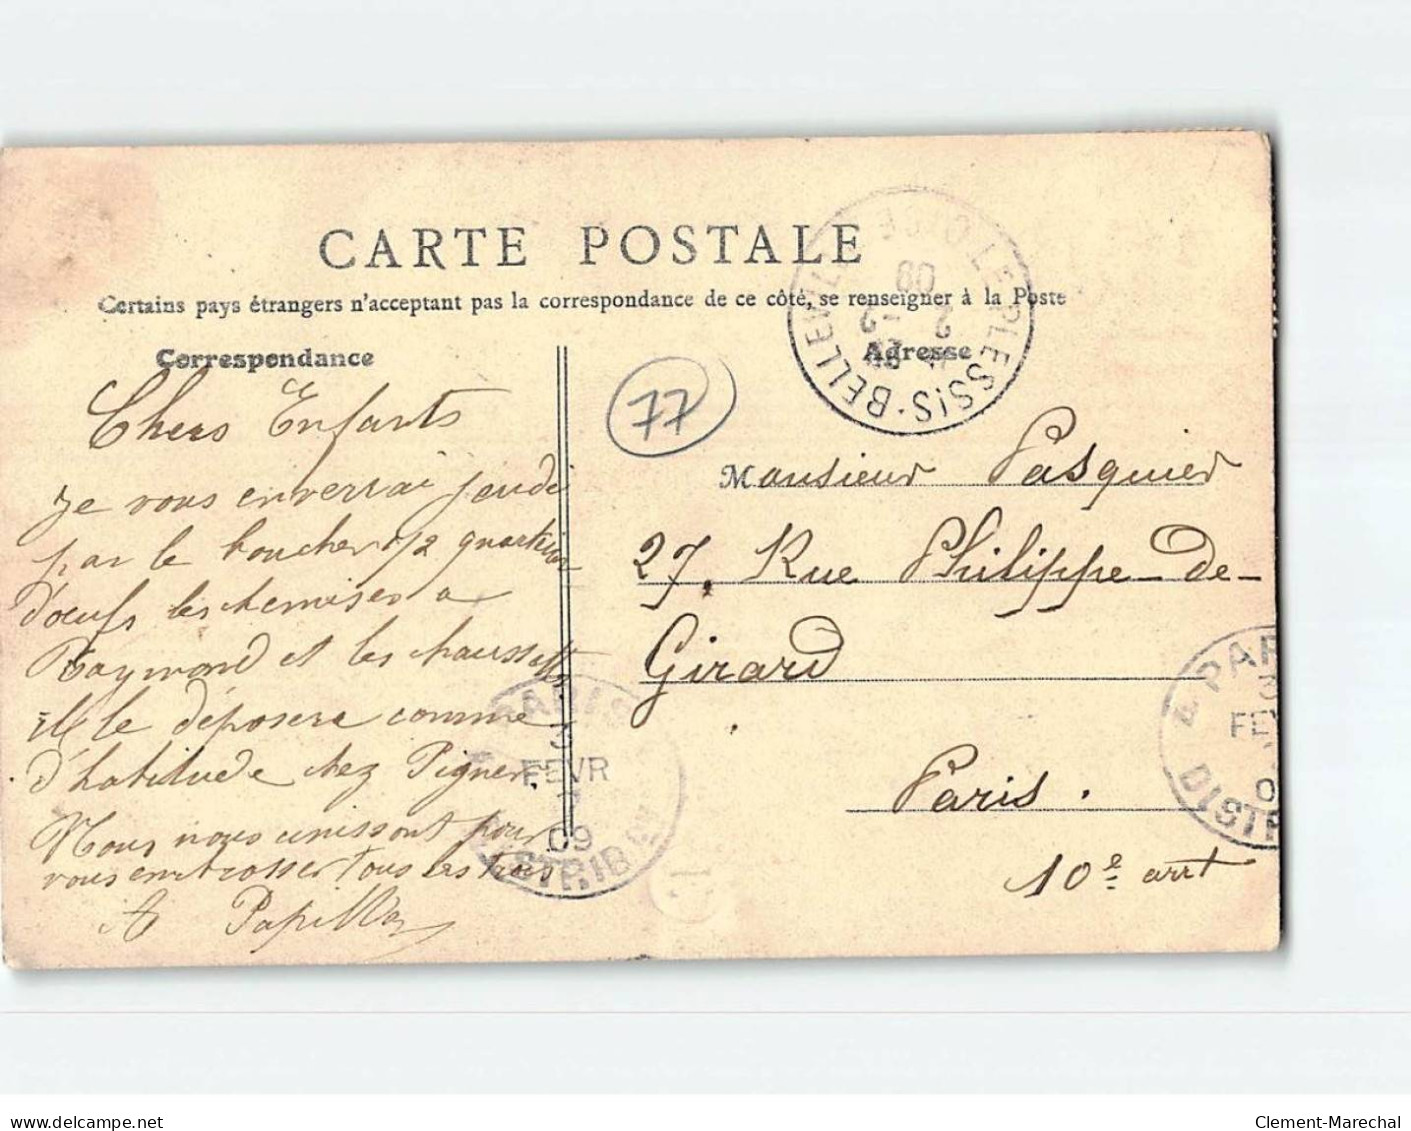 CARTE POSTALE
Certains pays étrangers n'acceptant pas la correspondance de ce côté, se renseigner à la Poste
Correspondance
Chers Enfants
je vous enverrai jeudi
par le boucher 1/2 quarteron
d'oeufs les chemises a
Raymond et les chaussettes
il le déposera comme
d'habitude chez Pigner
Nous nous unissont pour
vous embrasser tous les trois
A Papillon
Adresse
77
Monsieur Pasquier
27, Rue Philippe-de-
Girard
Paris.
10e arrt
LE PLESSIS-BELLEVILLE OISE
2 -2 09
PARIS
3
FEVR
09
DISTRIB
PAR
3
FEV
0
DISTR
delcampe.net
Clement-Marechal